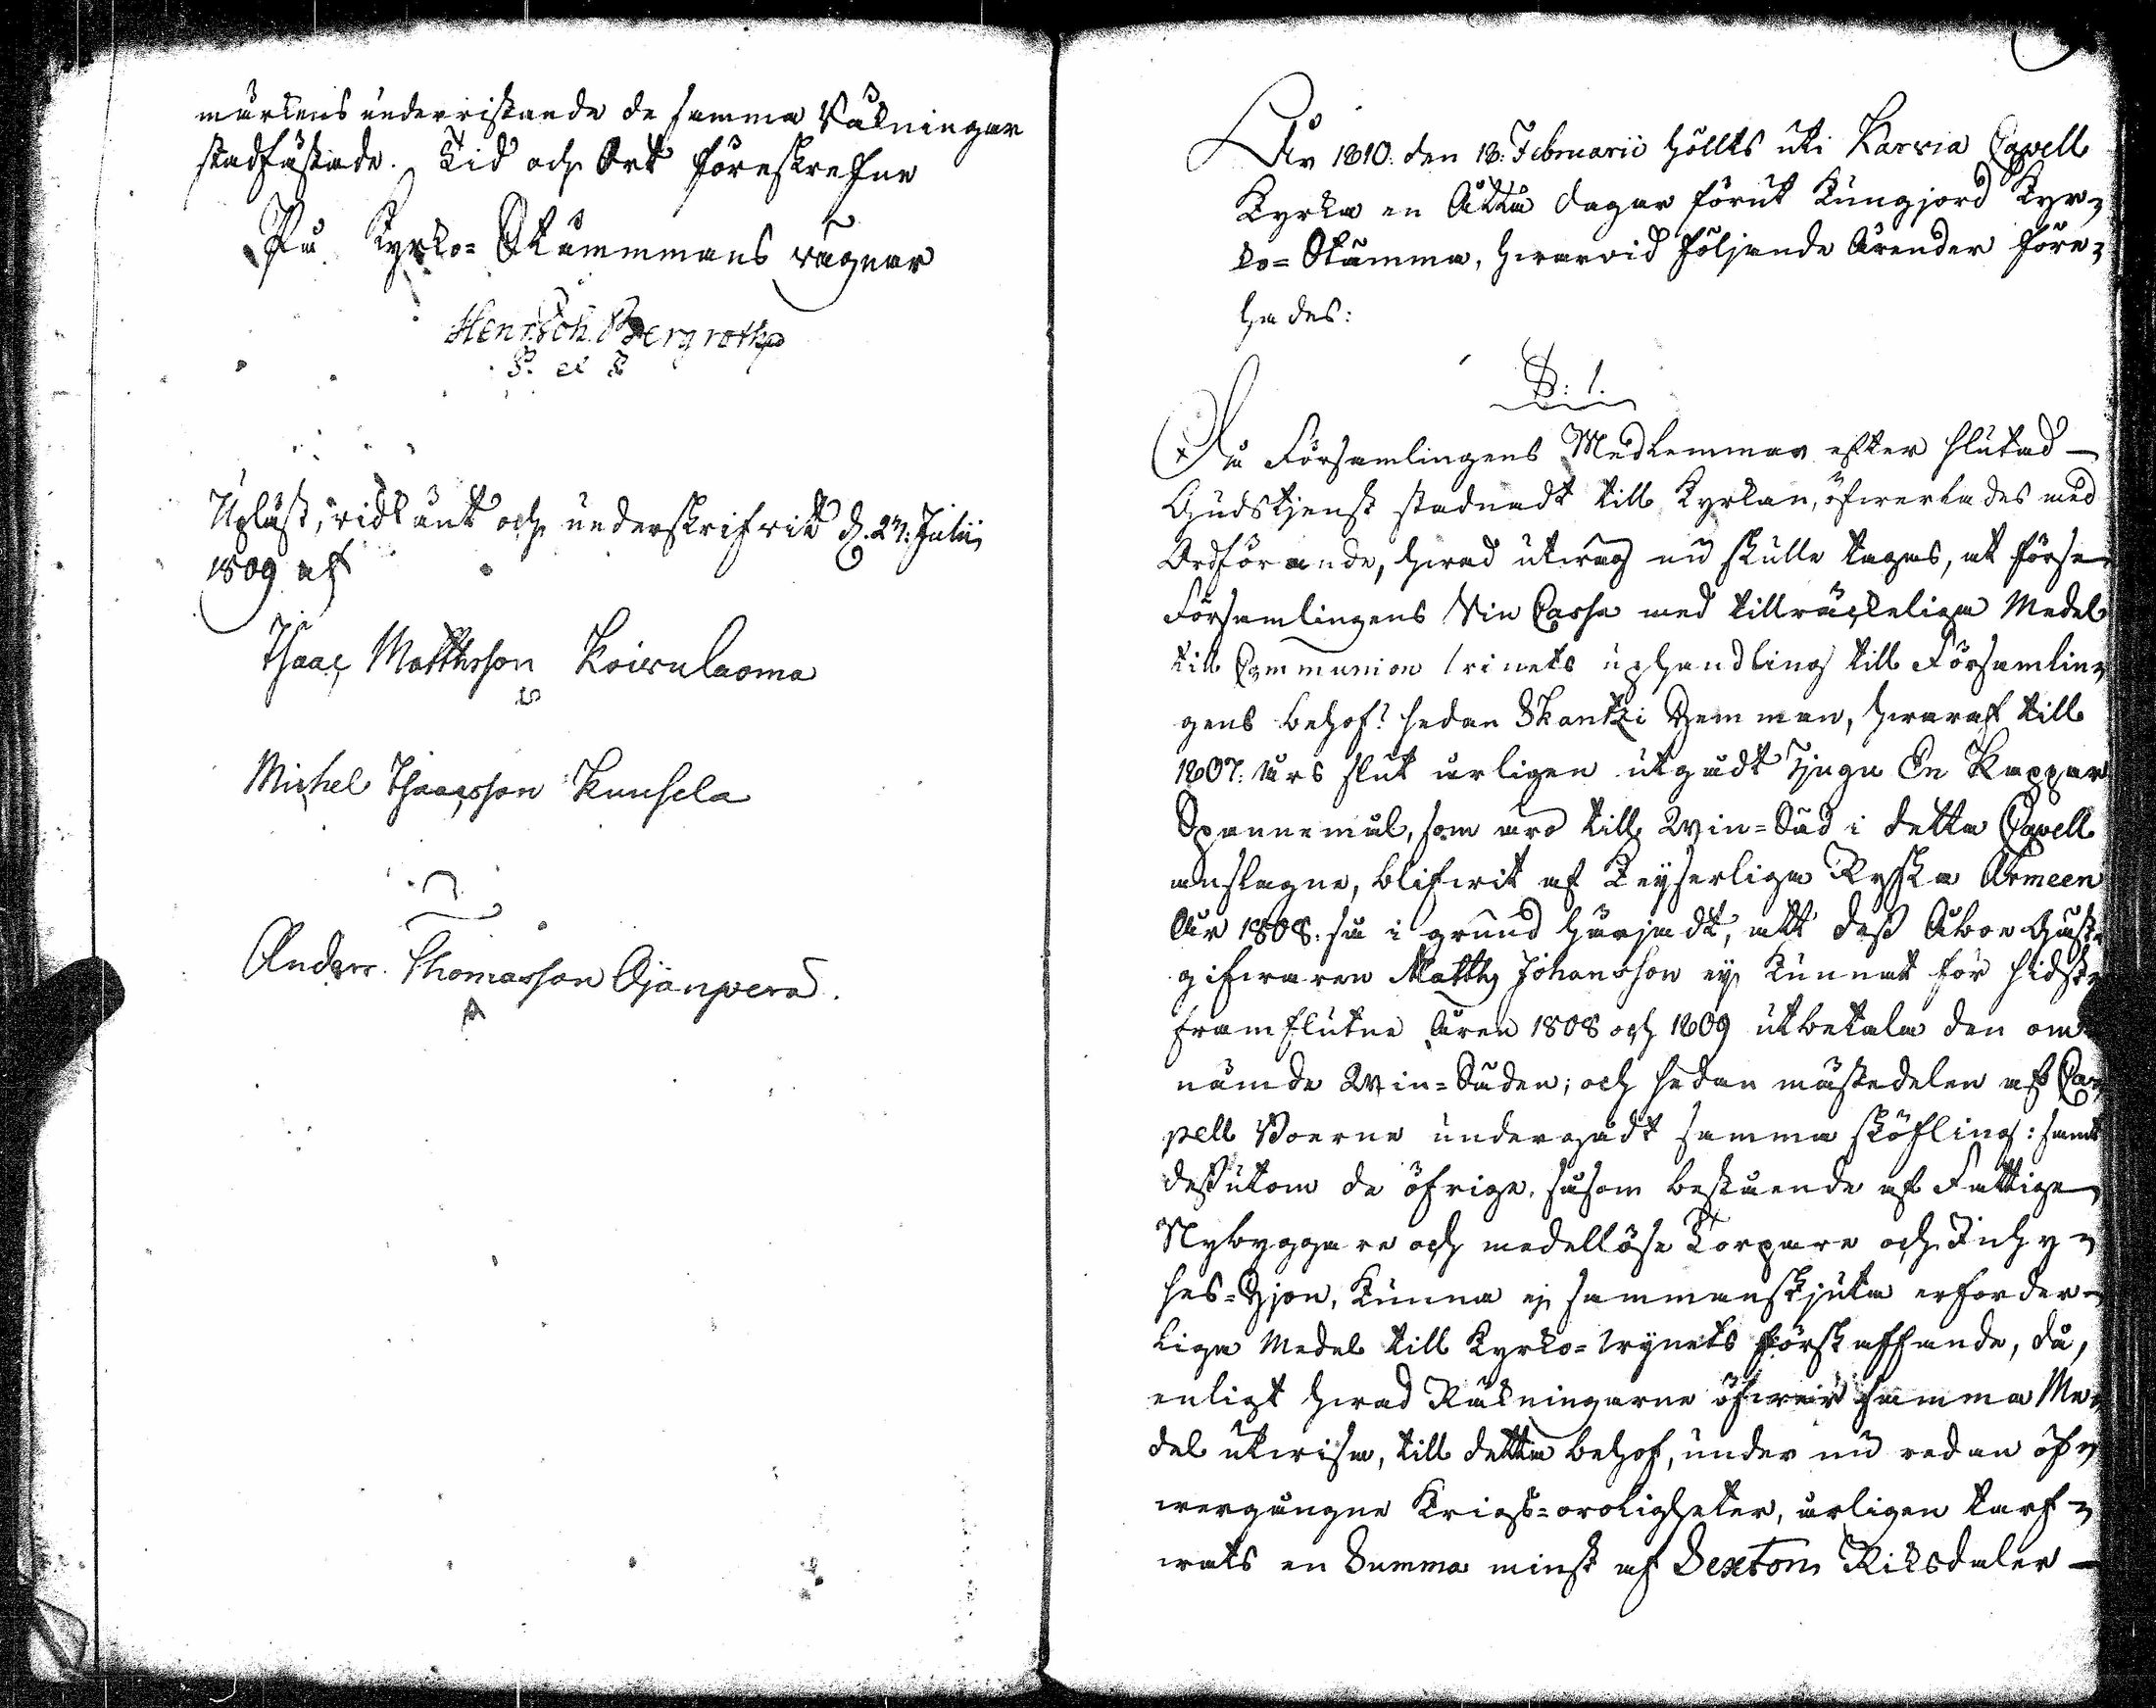 märkens underristande de samma Räkningar
stadfästade. Tid och Ort föreskrefne
På Kyrko=Stämmmans vägnar
Henr: Joh. Bergroth
P. et P
Upläst, vidkänt och underskrifvit d. 27. Julii
1809 af
Isaac Mattsson Koivulaoma
Michel Isaacsson Kuusela
Anders Thomasson Ojanperä.
År 1810. den 18. Februarii hölts uti Karvia Capell
Kyrka en Åtta dagar förut Kungjord Kyr=
ko=Stämma, hvarvid följande Ärender före=
hades:
§: 1.
Då Församlingens Medlemmar efter slutad
Gudstjenst stadnadt till Kyrkan, öfwerlades med
Ordförande, hvad utwäg nu skulle tagas, at förse
Församlingens Vin Cassa med tillräckeliga Medel
till Communion vinets uphandling till Församlin=
gens behof? sedan Skantzi Hemman, hvaraf till
1807. års slut årligen utgådt Tjugu En Kappar
Spannemål, som äro till Win=Säd i detta Capell
anslagne, blifwit af Keyserliga Ryska Armeen
År 1808. så i grund härjadt, att dess Åboe Gäst=
gifwaren Matths Johansson ej kunnat för sidst=
framflutne Åren 1808 och 1809 utbetala den om=
nämde Win=Säden; och sedan mästedelen af Ca=
pell Boerne undergådt samma sköfling: samt
dessutom de öfrige, såsom bestående af Fattige
Nybyggare och medellöse Torpare och Inhy=
ses=Hjon, Kunna ej sammanskjuta erforder=
liga Medel till Kyrko=vinets förskaffande, då,
enligt hvad Räkningarne öfwer samma Me=
del utwisa, till detta behof, under nu redan öf=
wergångne Krigs=oroligheter, årligen tarf=
wats en Summa minst af Sexton Riksdaler